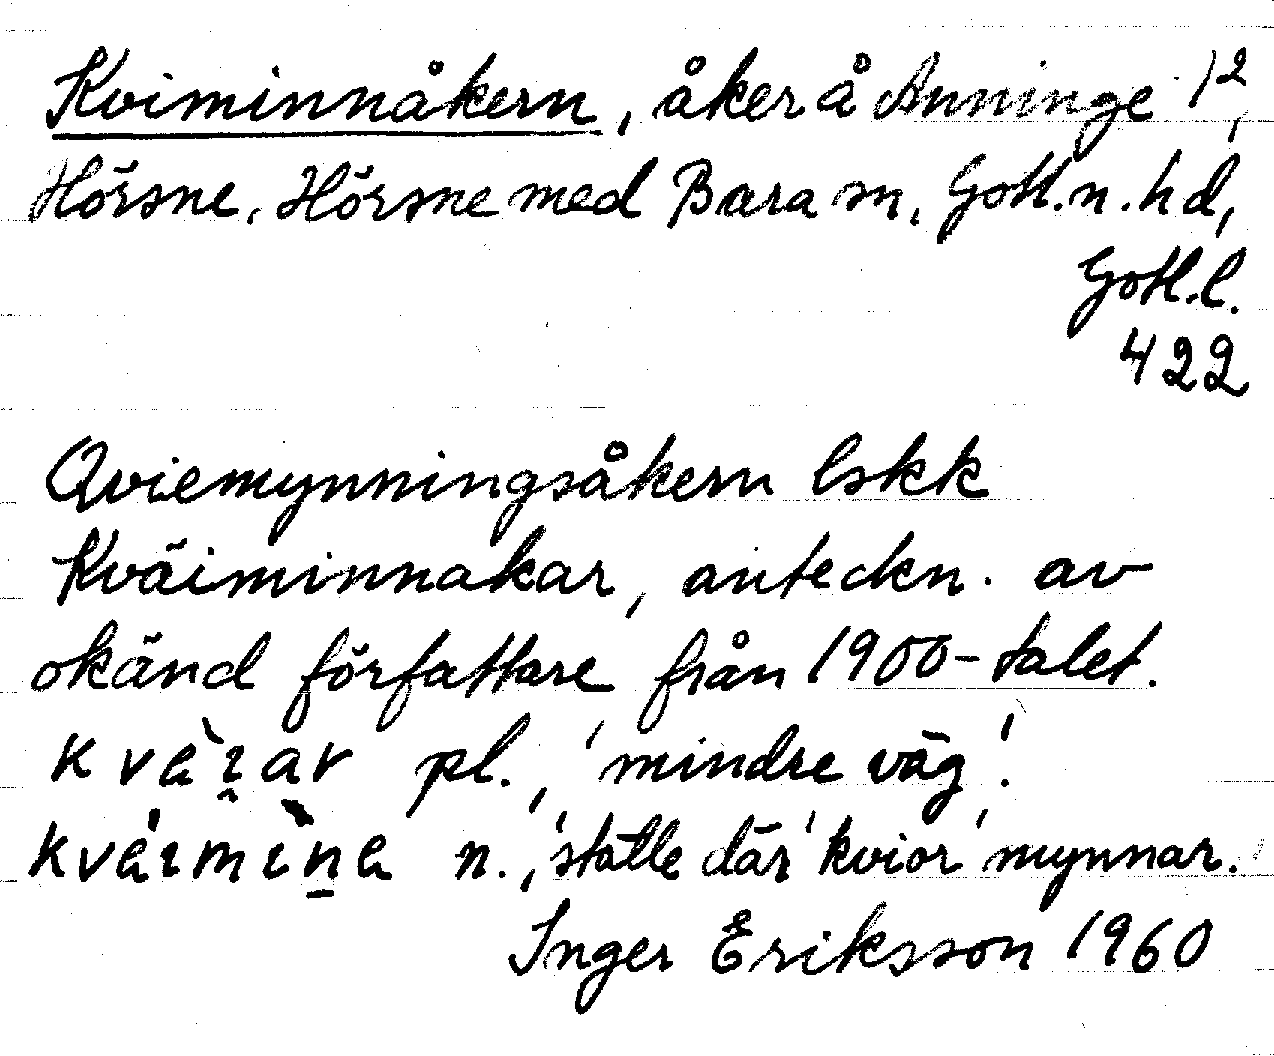 Kviminnåkern, åker å Anninge 1²,
Hörsne, Hörsne med Bara sn, Gotl.n.hd,
Gotl.l.
422
Qviemynningsåkern lskk
Kväiminnakar, anteckn. av
okänd författare från 1900-talet.
kvàɪ̯ar pl., 'mindre väg'.
kváɪmɪ̀n̠a n., 'ställe där 'kvior' mynnar.'
Inger Eriksson 1960